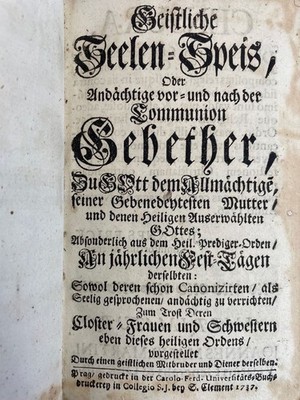 Geistliche
Seelen-Speis,
Oder
Andächtige vor- und nach der
Communion
Gebether,
Zu GOtt dem Allmächtigē,
seiner Gebenedeytesten Mutter,
und denen Heiligen Auserwählten
GOttes;
Absonderlich aus dem Heil. Prediger-Orden,
An jährlichen Fest-Tägen
derselbten:
Sowol deren schon Canonizirten, als
Seelig gesprochenen, andächtig zu verrichten,
Zum Trost Deren
Closter-Frauen und Schwestern
eben dieses heiligen Ordens,
vorgestellet
Durch einen geistlichen Mitbruder und Diener derselben.
Prag, gedruckt in der Carolo-Ferd. Universitäts-Buch-
druckerey in Collegio S. J. bey S. Clement 1737.